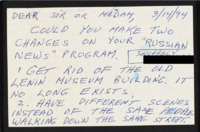 DEAR SIR OR MADAM, 3/14/94
COULD YOU MAKE TWO
CHANGES ON YOUR "RUSSIAN
NEWS" PROGRAM.
1. GET RID OF THE OLD
LENIN MUSEUM BUILDING. IT
NO LONG EXISTS.
2. HAVE DIFFERENT SCENES
INSTEAD OF SAME PEOPLE
WALKING DOWN THE SAME STREET.